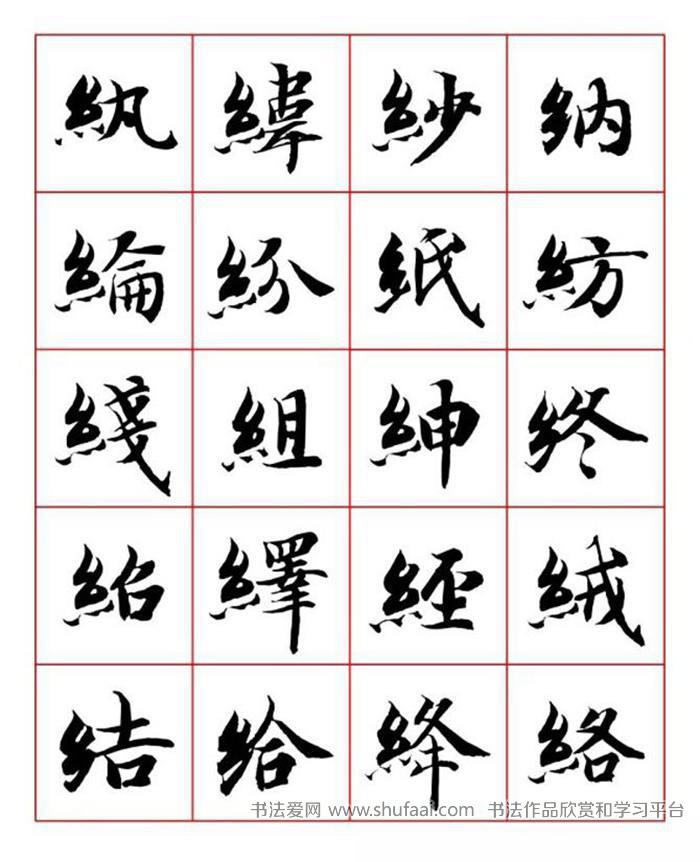 紈緯紗納
綸紛紙紡
綫組紳終
紹繹經絨
結給絳絡
书法爱网 www.shufaai.com 书法作品欣赏和学习平台